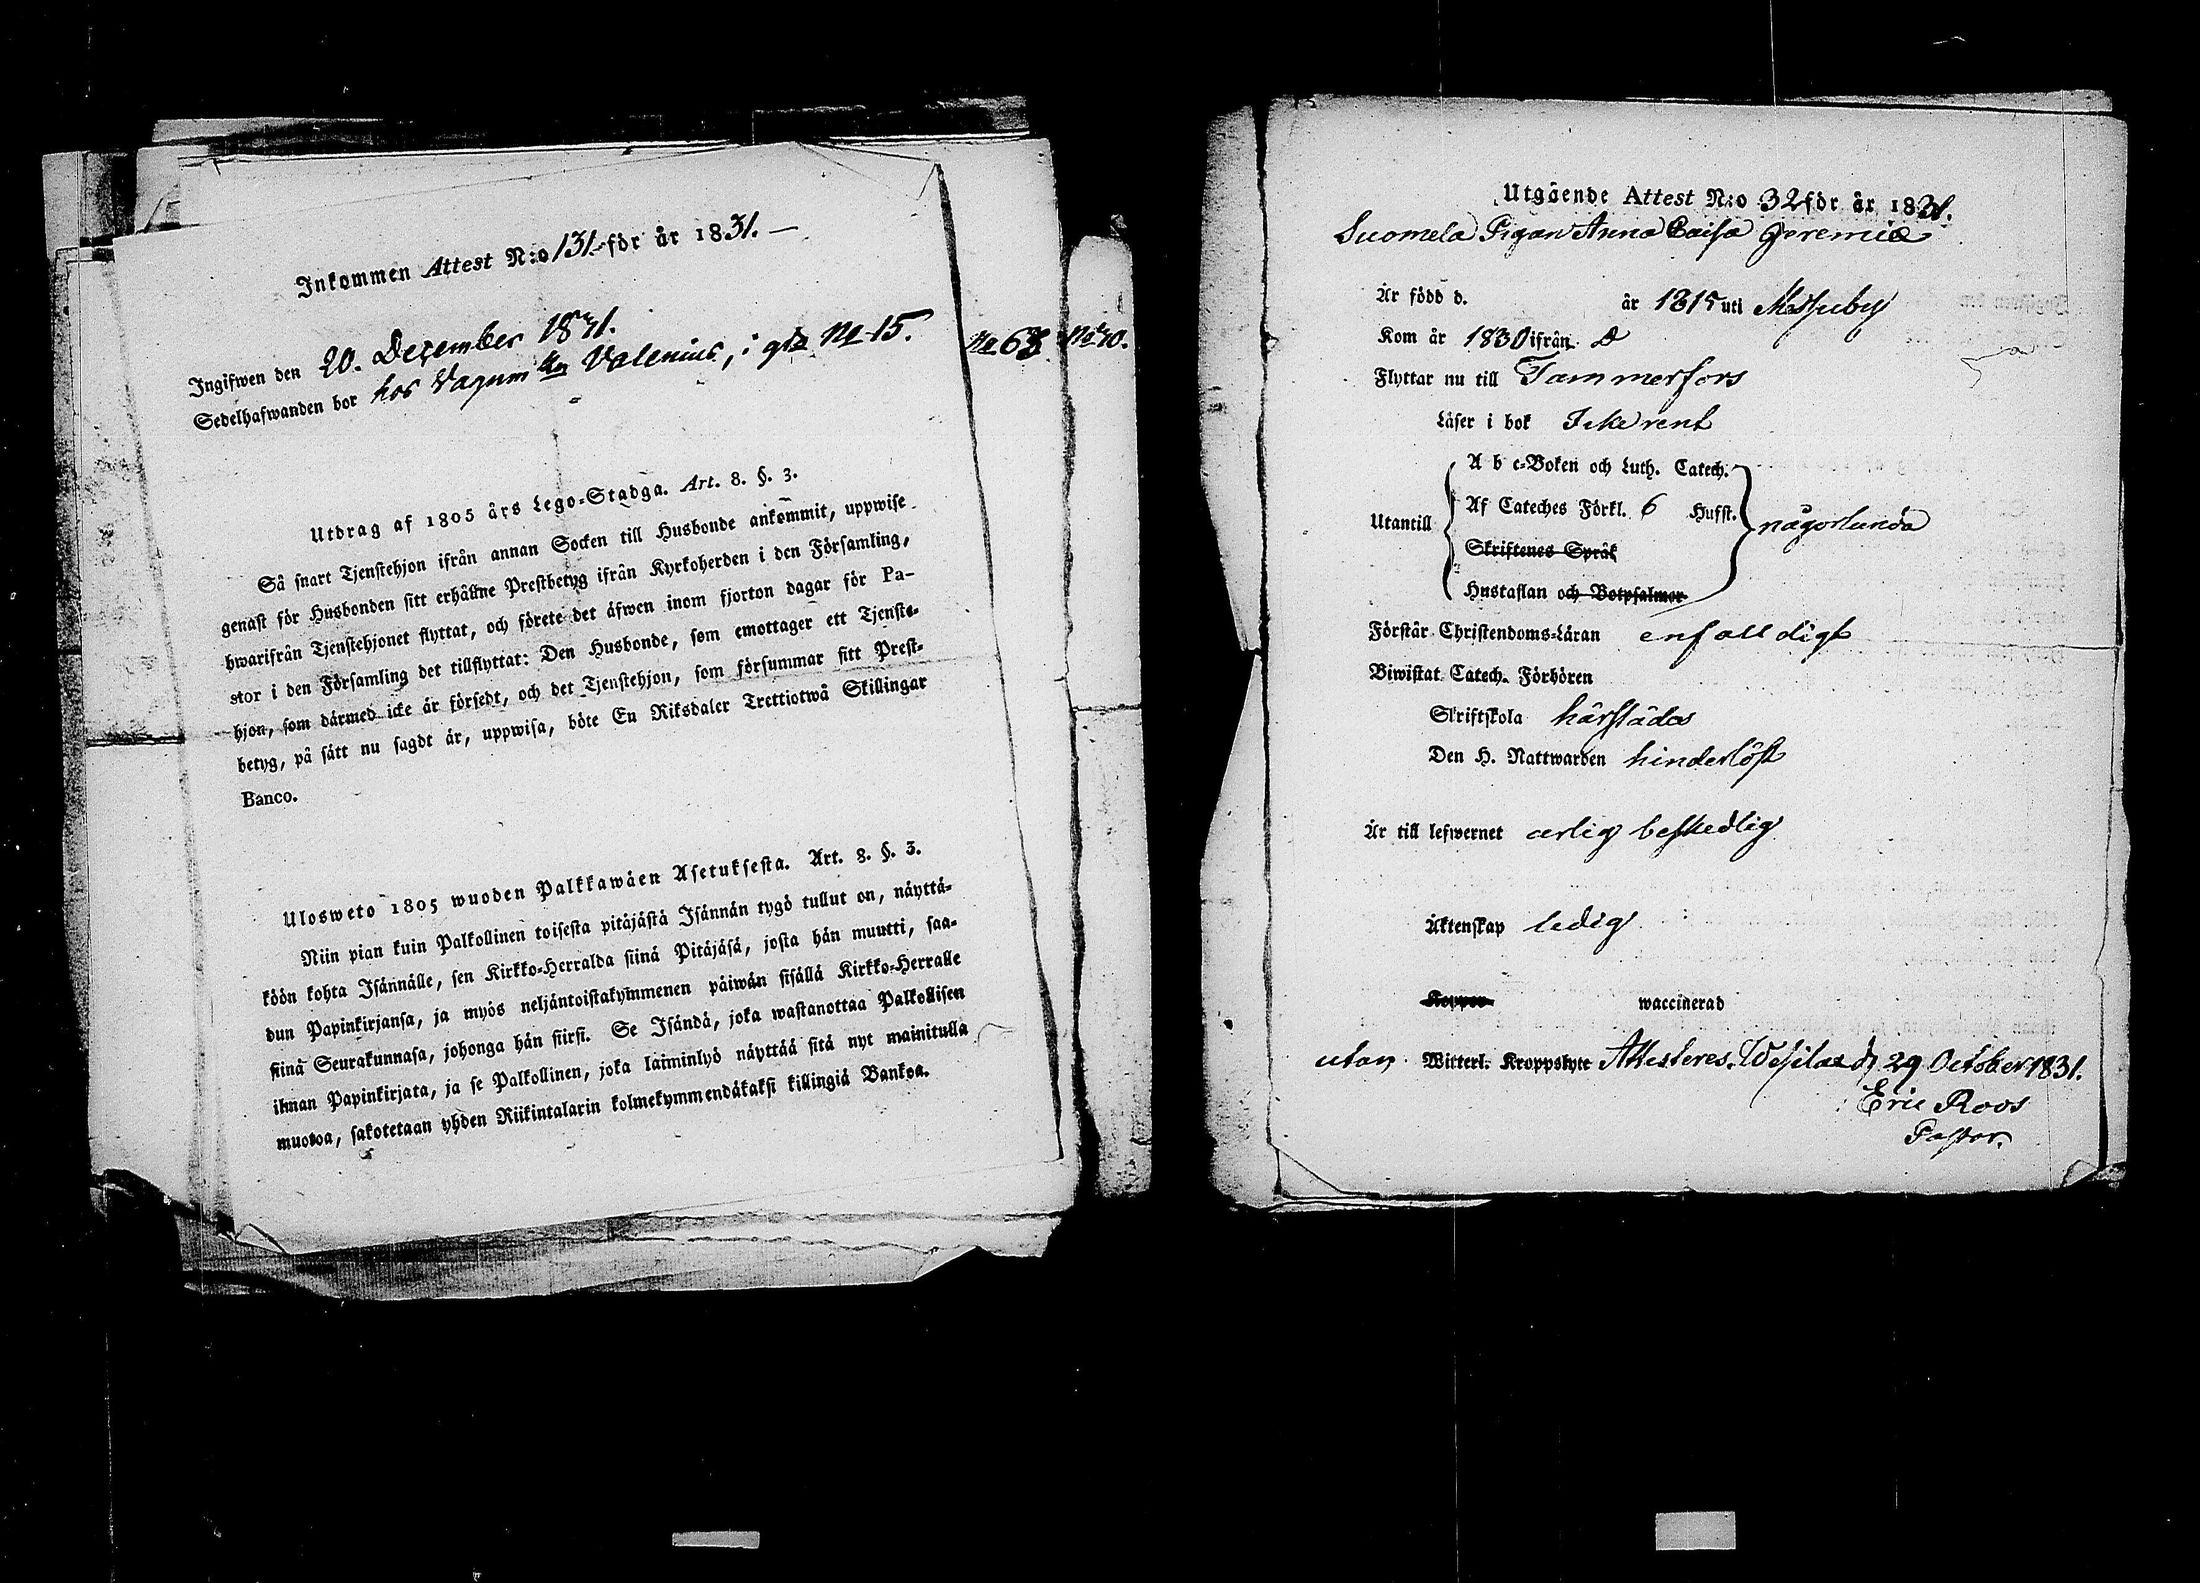 Inkommen Attest N:o 131. för år 1831. —
Ingifwen den 20. December 1831.
Sedelhafwanden bor hos Vagnm Valenius, i gt N:o 15.
No 63
No 70.
Utdrag af 1805 års Lego-Stadga. Art. 8. §. 3.
Så snart Tjenstehjon ifrån annan Socken till Husbonde ankommit, uppwise
genast för Husbonden sitt erhållne Prestbetyg ifrån Kyrkoherden i den Församling,
hwarifrån Tjenstehjonet flyttat, och förete det äfwen inom fjorton dagar för Pa-
stor i den Församling det tillflyttat: Den Husbonde, som emottager ett Tjenste-
hjon, som därmed icke är försedt, och det Tjenstehjon, som försummar sitt Prest-
betyg, på sätt nu sagdt är, uppwisa, böte En Riksdaler Trettiotwå Skillingar
Banco.
Ulosweto 1805 wuoden Palkkawäen Asetuksesta. Art. 8. §. 3.
Niin pian kuin Palkollinen toisesta pitäjästä Isännän tygö tullut on, näyttä-
köön kohta Isännälle, sen Kirkko-Herralda siinä Pitäjäsä, josta hän muutti, saa-
dun Papinkirjansa, ja myös neljäntoistakymmenen päiwän sisällä Kirkko-Herralle
siinä Seurakunnasa, johonga hän siirsi. Se Isändä, joka wastanottaa Palkollisen
ilman Papinkirjata, ja se Palkollinen, joka laiminlyö näyttää sitä nyt mainitulla
muotoa, sakotetaan yhden Riikintalarin kolmekymmendäkaksi killingiä Bankoa.
Utgående Attest N:o 32 för år 1831.
Suomela Pigan Anna Caisa Jeremiæ
Är född d. år 1815 uti Messuby
Kom år 1830 ifrån D
Flyttar nu till Tammerfors
Läser i bok Icke rent
A b c-Boken och Luth. Catech.
Utantill Af Cateches Förkl. 6 Husst. någorlunda
Skriftenes Språk
Hustaflan och Botpsalmer
Förstår Christendoms-Läran enfalldigt
Biwistat Catech. Förhören
Skriftskola härstädes
Den H. Nattwarden hinderlöst
Är till lefwernet ærlig beskedlig
Äktenskap ledig
Koppor waccinerad
utan Witterl. Kroppslyte Attesteres. Wesilax d 29 October 1831.
Eric Roos
Pastor.